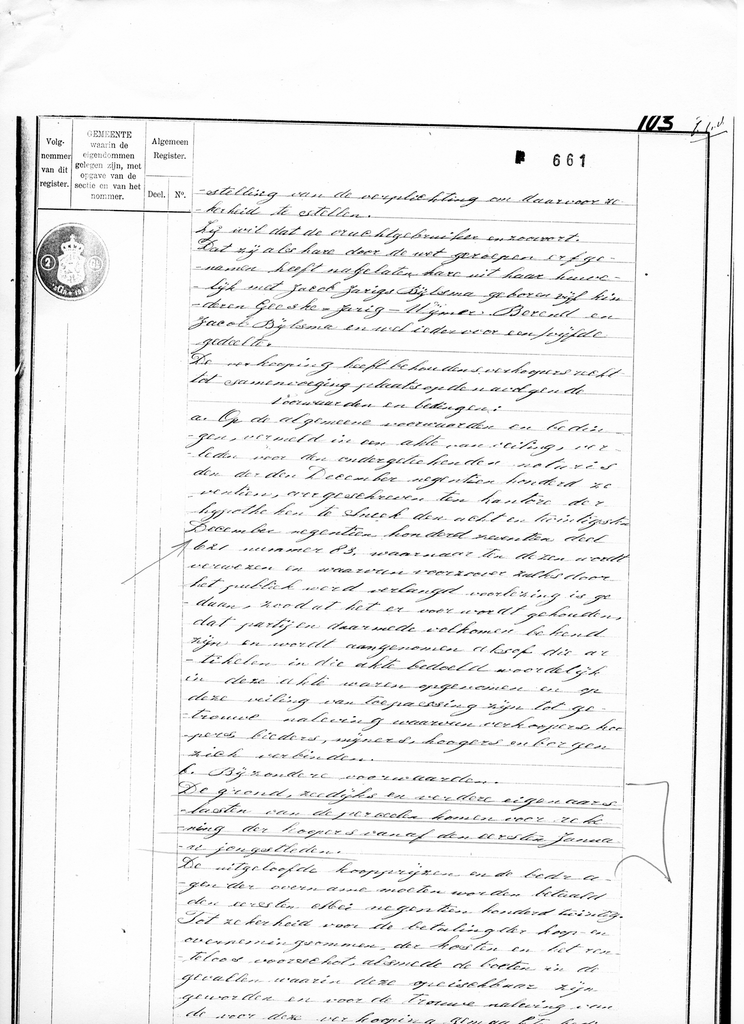 103
661
Volg-
nommer
van dit
register.
GEMEENTE
waarin de
eigendommen
gelegen zijn, met
opgave van de
sectie en van het
nommer.
Algemeen
Register.
Deel. No.
-stelling van de verplichting om daarvoor ze
-kerheid te stellen.
Zij wil dat de vruchtgebruiker enzoovort.
Dat zij als hare door de wet geroepen erfge-
-namen heeft nagelaten hare uit haar huwe-
-lijk met Jacob Jarigs Bijlsma geboren vijf kin
-deren Geeske - Jarig - Mijmer Berend en
Jacob Bijlsma en wel ieder voor een vijfde
gedeelte.
De verkooping heeft behoudens verkoopers recht
tot samenvoeging plaats op de navolgende
voorwaarden en bedingen:
a. Op de algemeene voorwaarden en bedin-
-gen, vermeld in een akte van veiling, ver-
-leden voor den ondergeteekenden notaris
den derden December negentien honderd ze
-ventien, overgeschreven ten kantore der
hypotheken te Sneek den acht en twintigsten
December negentien honderd zeventien deel
621 nummer 83, waarnaar ten dezen wordt
verwezen en waarvan voorzoover zulks door
het publiek werd verlangd voorlezing is ge
-daan, zoodat het er voor wordt gehouden,
dat partijen daarmede volkomen bekend
zijn en wordt aangenomen alsof die ar
-tikelen in die akte bedoeld woordelijk
in deze akte waren opgenomen en op
deze veiling van toepassing zijn tot ge-
-trouwe naleving waarvan verkoopers, koo
-pers bieders, mijners, hoogers en borgen
zich verbinden.
b. Bijzondere voorwaarden.
De grond, zeedijks en verdere eigenaars
-lasten van de perceelen komen voor reke
-ning der koopers vanaf den eersten Janua
-ri jongstleden.
De uitgeloofde koopprijzen en de bedra-
-gen der overname moeten worden betaald
den eersten Mei negentien honderd twintig.
Tot zekerheid voor de betaling der koop en
overnemingsommen, der kosten en het ren-
-teloos voorschot, alsmede de boeten in de
gevallen waarin deze opeischbaar zijn
geworden en voor de trouwe naleving van
de voor deze verkooping gemaakte